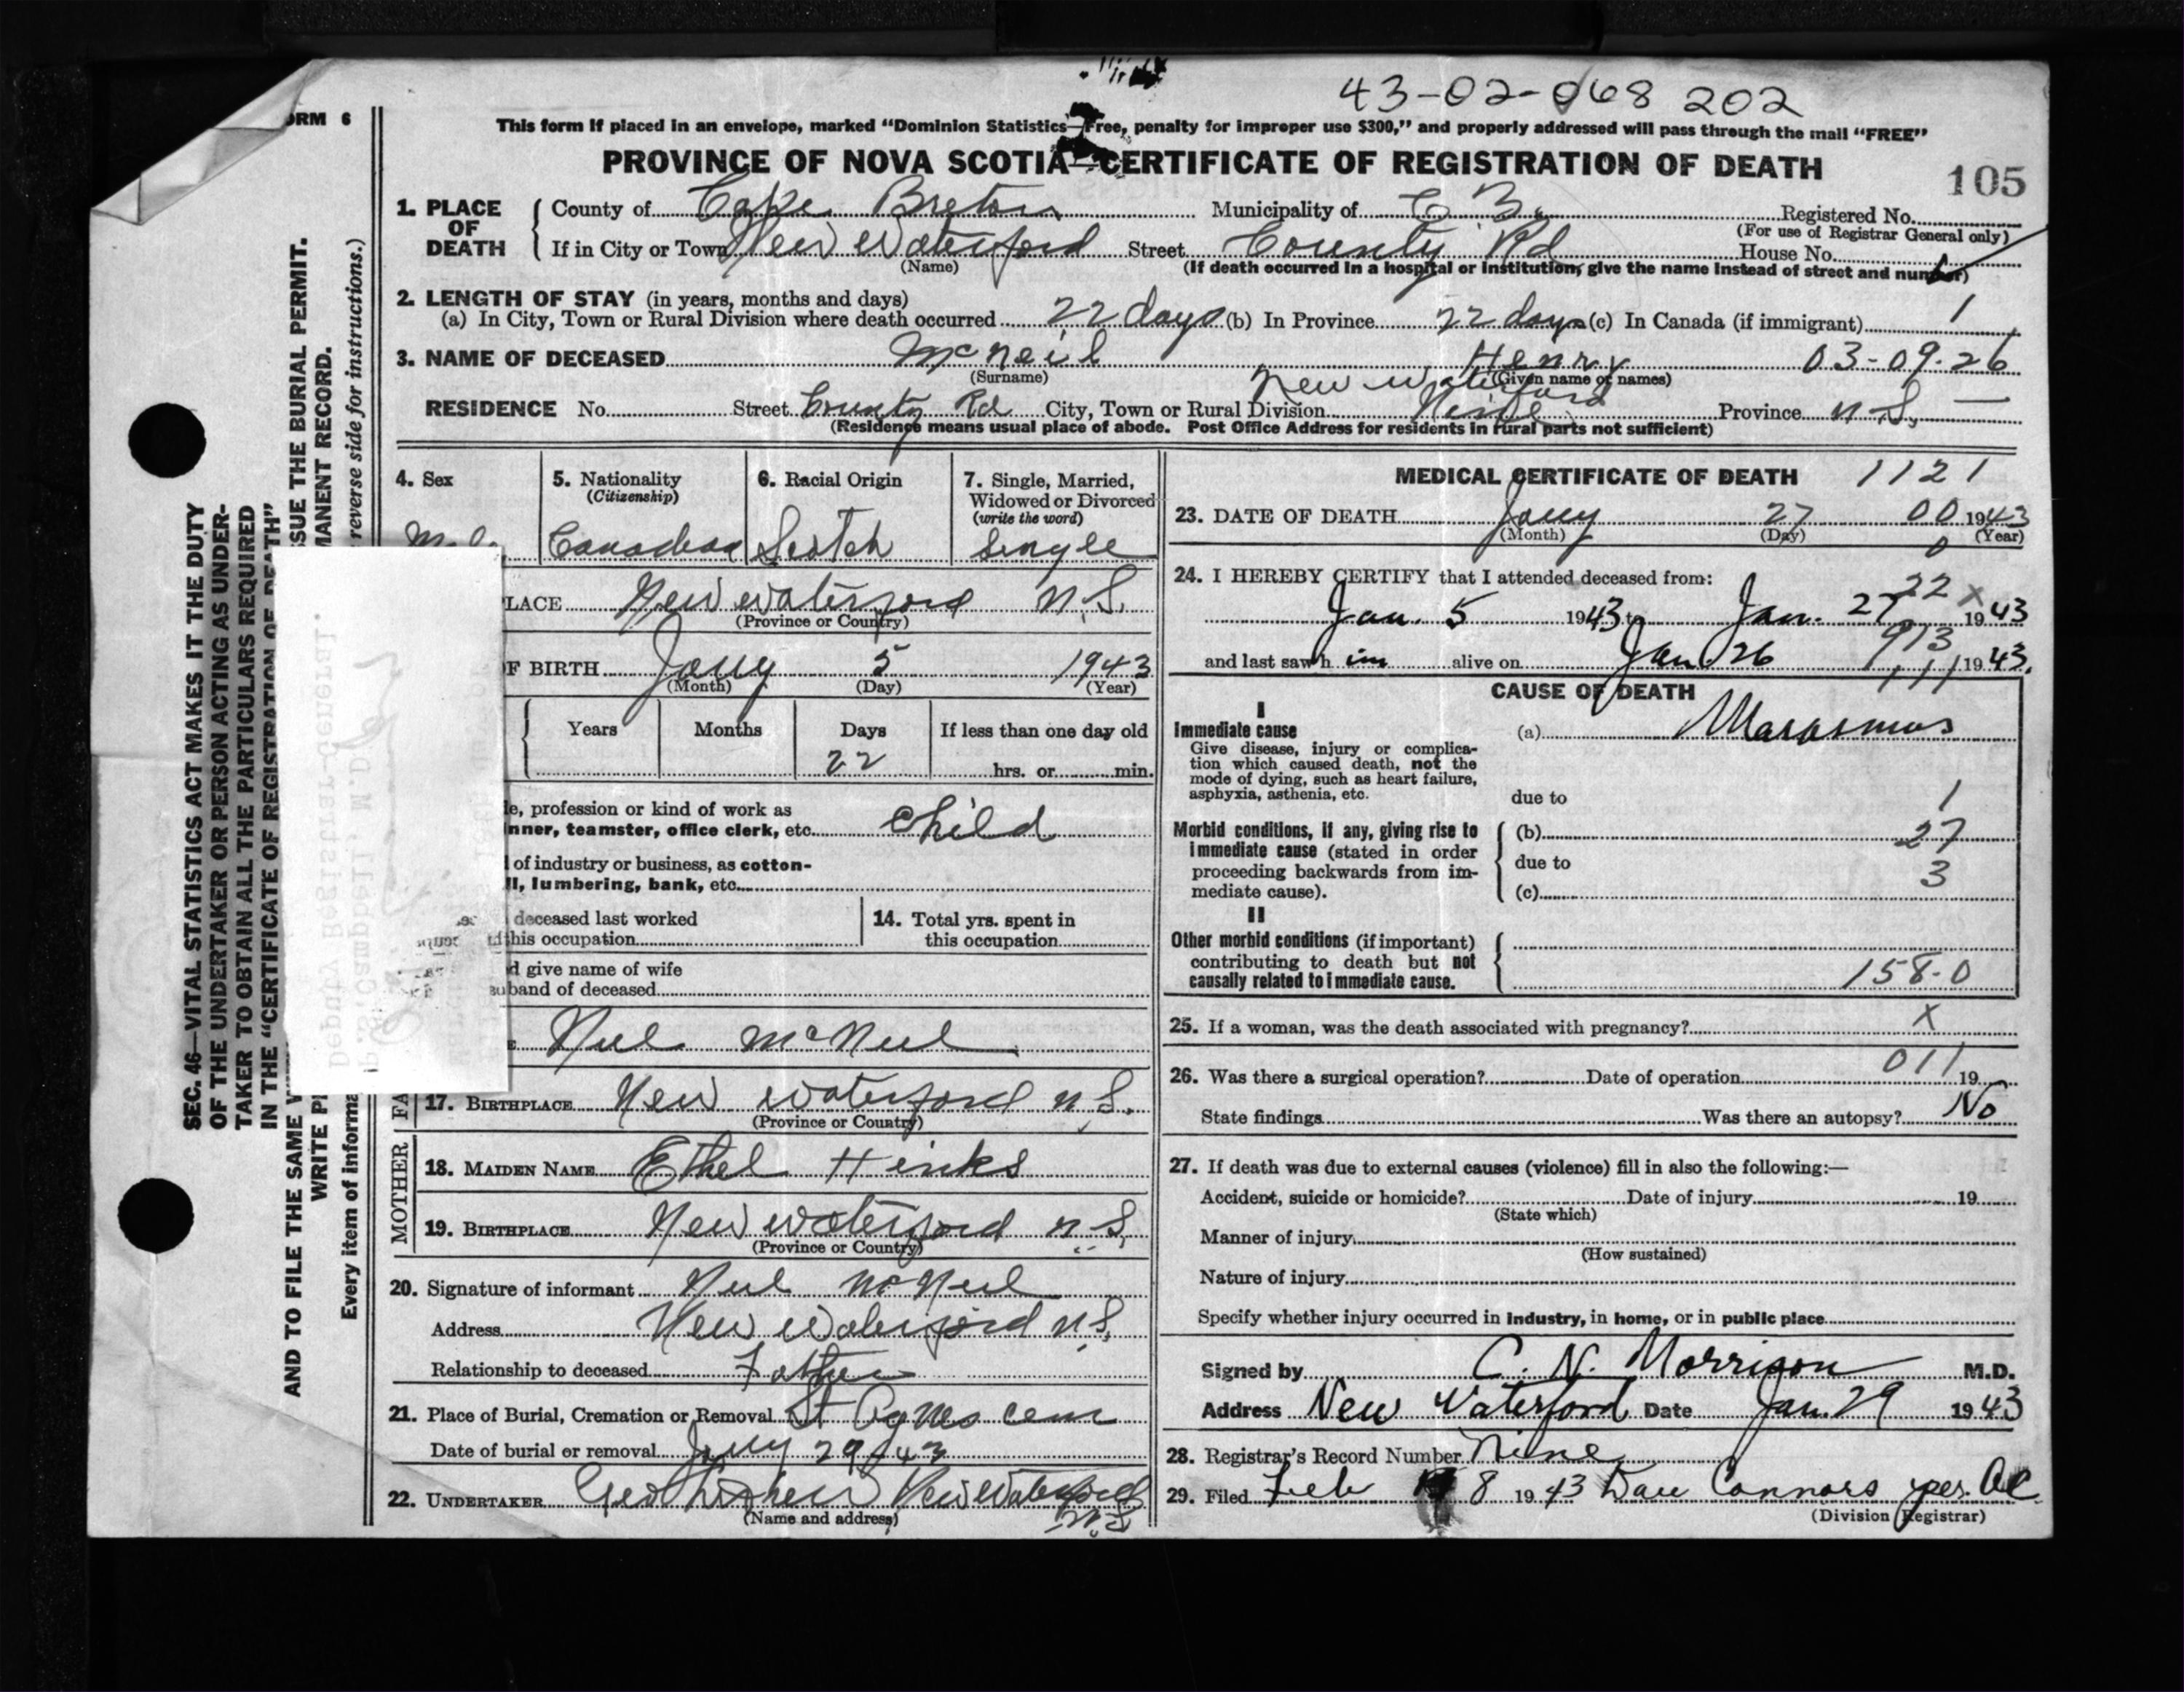 43-02-068 202
FORM 6
This form if placed in an envelope, marked "Dominion Statistics—Free, penalty for improper use $300," and properly addressed will pass through the mail "FREE"
PROVINCE OF NOVA SCOTIA—CERTIFICATE OF REGISTRATION OF DEATH
105
1. PLACE OF DEATH
County of Cape Breton Municipality of C B. Registered No.
(For use of Registrar General only)
If in City or Town New Waterford Street County Rd House No.
(Name) (If death occurred in a hospital or institution, give the name instead of street and number)
2. LENGTH OF STAY (in years, months and days)
(a) In City, Town or Rural Division where death occurred 22 days (b) In Province 22 days (c) In Canada (if immigrant) 1
3. NAME OF DECEASED McNeil Henry 03-09-26
(Surname) (Given name or names)
New Waterford
RESIDENCE No. Street County Rd City, Town or Rural Division Province N.S. —
(Residence means usual place of abode. Post Office Address for residents in rural parts not sufficient)
4. Sex
Male
5. Nationality
(Citizenship)
Canadian
6. Racial Origin
Scotch
7. Single, Married,
Widowed or Divorced
(write the word)
Single
LACE New Waterford N.S.
(Province or Country)
F BIRTH Jany 5 1943
(Month) (Day) (Year)
Years Months Days If less than one day old
22 hrs. or min.
e, profession or kind of work as
nner, teamster, office clerk, etc. Child
of industry or business, as cotton-
ll, lumbering, bank, etc.
deceased last worked
this occupation
14. Total yrs. spent in
this occupation
d give name of wife
usband of deceased
Neil McNeil
17. BIRTHPLACE New Waterford N.S.
(Province or Country)
MOTHER
18. MAIDEN NAME Ethel Hinks
19. BIRTHPLACE New Waterford N.S.
(Province or Country)
20. Signature of informant Neil McNeil
Address New Waterford N.S.
Relationship to deceased Father
21. Place of Burial, Cremation or Removal St Agnes Cem
Date of burial or removal Jany 29/43
22. UNDERTAKER New Waterford
N.S
(Name and address)
MEDICAL CERTIFICATE OF DEATH 1121
23. DATE OF DEATH Jany 27 00 1943
(Month) (Day) (Year)
0
24. I HEREBY CERTIFY that I attended deceased from:
22 x
Jan. 5 1943 to Jan. 27 1943
913
and last saw him alive on Jan 26 1943.
111
CAUSE OF DEATH
I
Immediate cause (a) Marasmus
Give disease, injury or complica-
tion which caused death, not the
mode of dying, such as heart failure,
asphyxia, asthenia, etc.
due to 1
Morbid conditions, if any, giving rise to
immediate cause (stated in order
proceeding backwards from im-
mediate cause).
(b) 27
due to 3
(c)
II
Other morbid conditions (if important)
contributing to death but not
causally related to immediate cause.
158-0
25. If a woman, was the death associated with pregnancy? X
011
26. Was there a surgical operation? Date of operation 19
State findings Was there an autopsy? No
27. If death was due to external causes (violence) fill in also the following:—
Accident, suicide or homicide? Date of injury 19
(State which)
Manner of injury
(How sustained)
Nature of injury
Specify whether injury occurred in industry, in home, or in public place
Signed by C. N. Morrison M.D.
Address New Waterford Date Jan. 29 1943
28. Registrar's Record Number Nine
29. Filed Feb 8 1943 Dan Connors per. AC
(Division Registrar)
SEC. 46—VITAL STATISTICS ACT MAKES IT THE DUTY
OF THE UNDERTAKER OR PERSON ACTING AS UNDER-
TAKER TO OBTAIN ALL THE PARTICULARS REQUIRED
IN THE "CERTIFICATE OF REGISTRATION OF DEATH"
AND TO FILE THE SAME SSUE THE BURIAL PERMIT.
WRITE PL MANENT RECORD.
Every item of informa reverse side for instructions.)
Deputy Registrar-General.
Campbell, M.D.